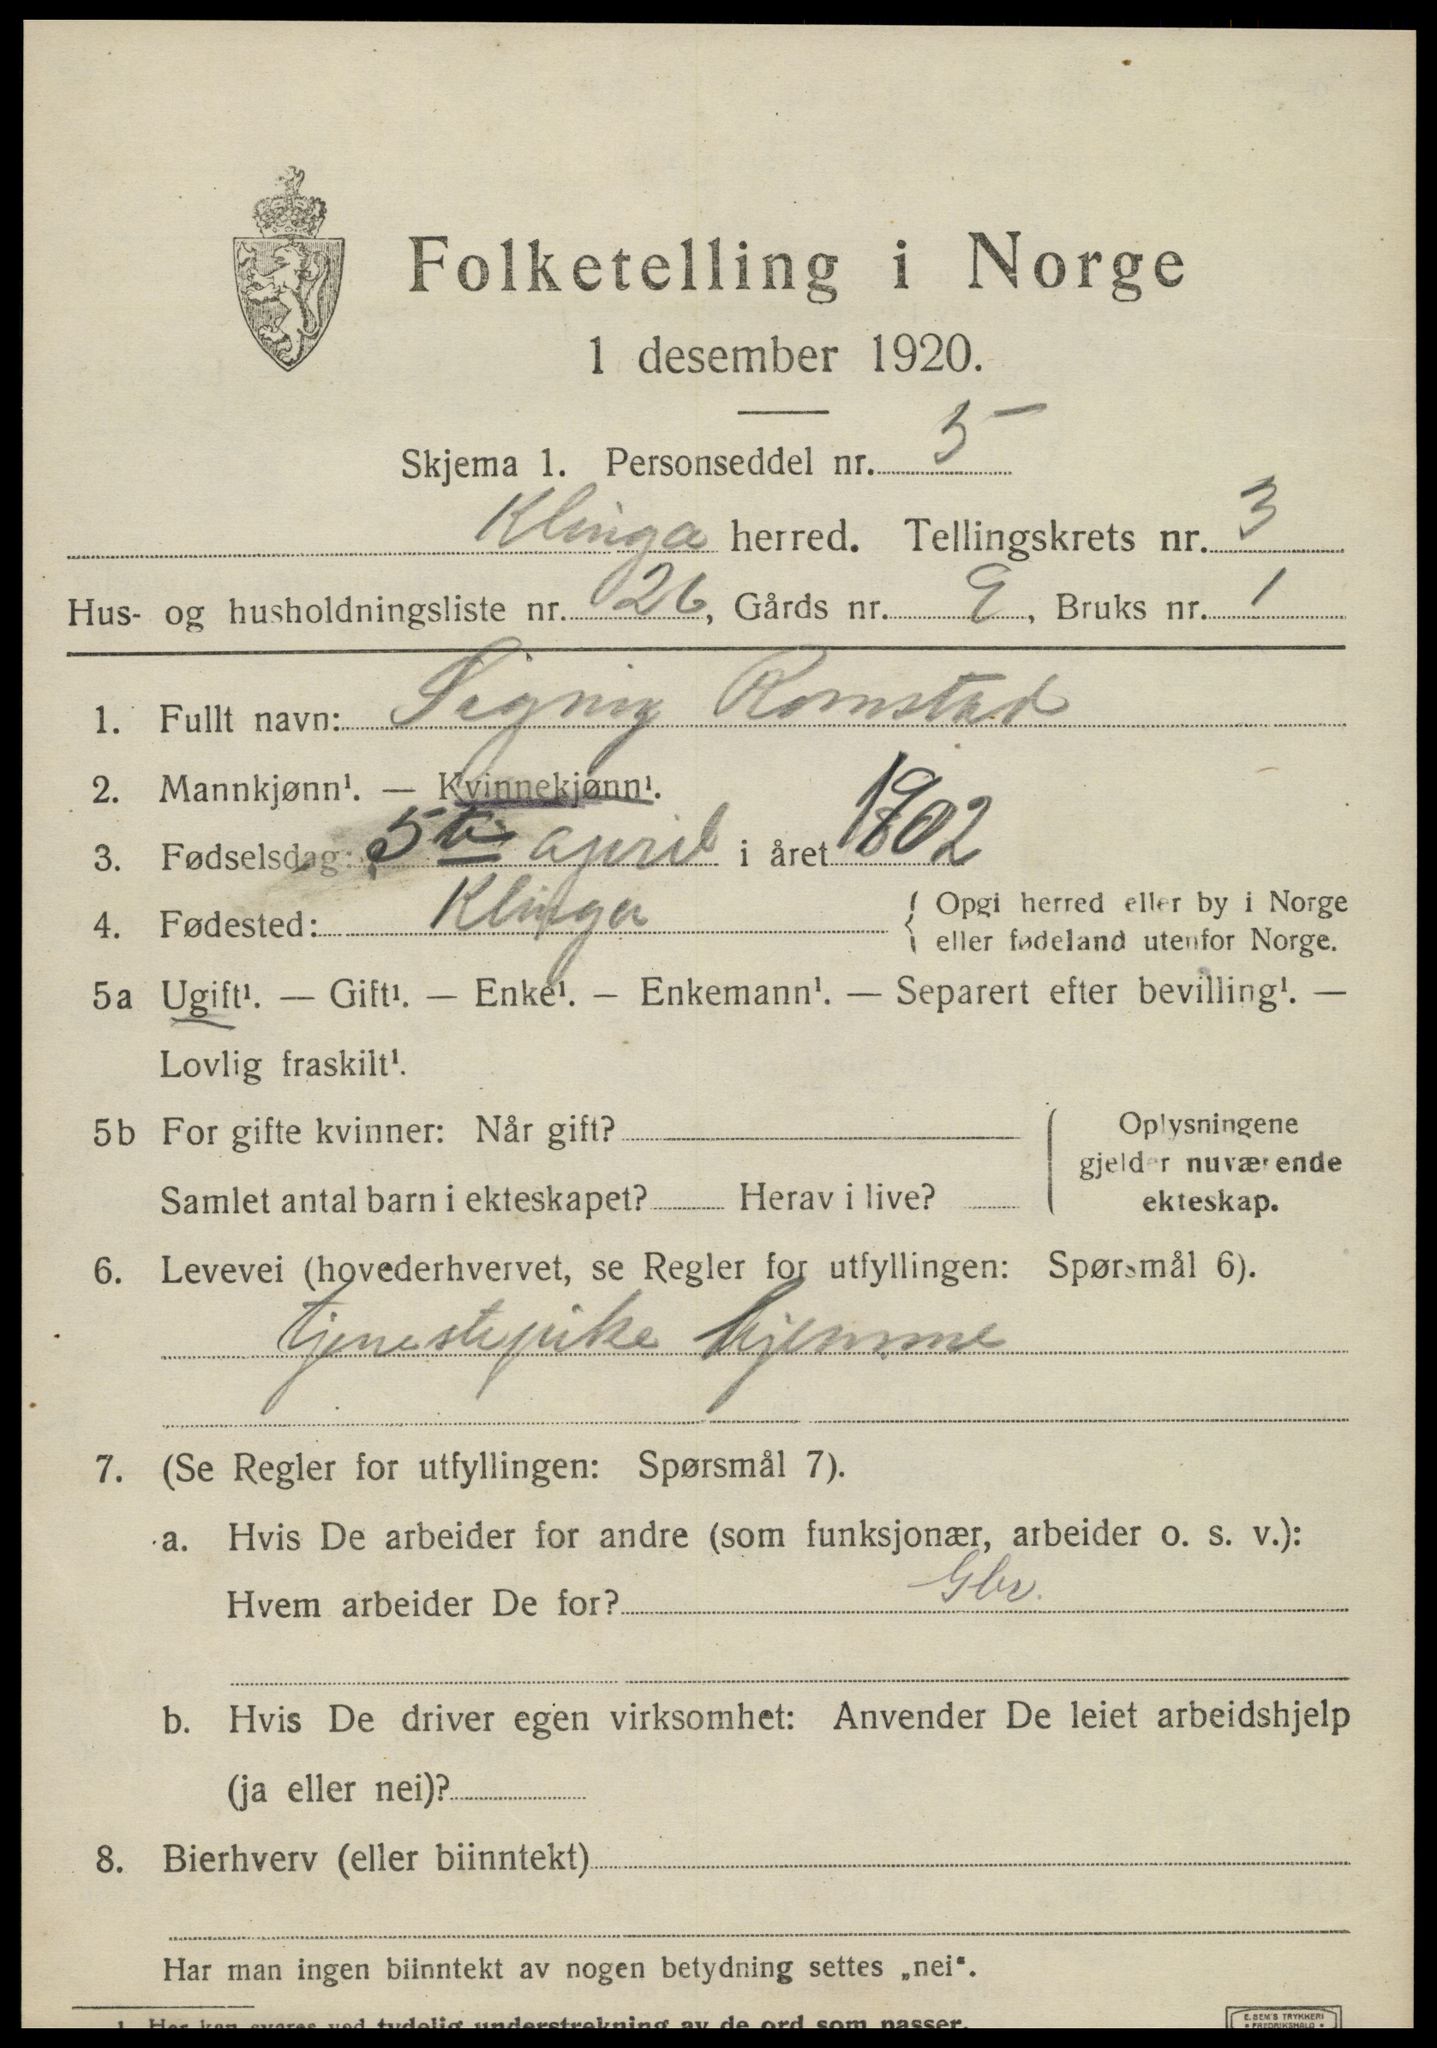 Folketelling i Norge
1 desember 1920.
Skjema 1. Personseddel nr. 5
Klinga herred. Tellingskrets nr. 3
Hus- og husholdningsliste nr. 26, Gårds nr. 9, Bruks nr. 1
1. Fullt navn: Signy Romstad
2. Mannkjønn¹. — Kvinnekjønn¹.
3. Fødselsdag: 5te april i året 1902
4. Fødested: Klinga { Opgi herred eller by i Norge
eller fødeland utenfor Norge.
5a Ugift¹. — Gift¹. — Enke¹. — Enkemann¹. — Separert efter bevilling¹. —
Lovlig fraskilt¹.
5b For gifte kvinner: Når gift?
Samlet antal barn i ekteskapet? Herav i live?
Oplysningene
gjelder nuværende
ekteskap.
6. Levevei (hovederhvervet, se Regler for utfyllingen: Spørsmål 6).
tjenestepike hjemme
7. (Se Regler for utfyllingen: Spørsmål 7).
a. Hvis De arbeider for andre (som funksjonær, arbeider o. s. v.):
Hvem arbeider De for? Gbr.
b. Hvis De driver egen virksomhet: Anvender De leiet arbeidshjelp
(ja eller nei)?
8. Bierhverv (eller biinntekt)
Har man ingen biinntekt av nogen betydning settes „nei“.
1 Her kan svares ved tydelig understrekning av de ord som passer.
E. SEM'S TRYKKERI
• FREDRIKSHALD •